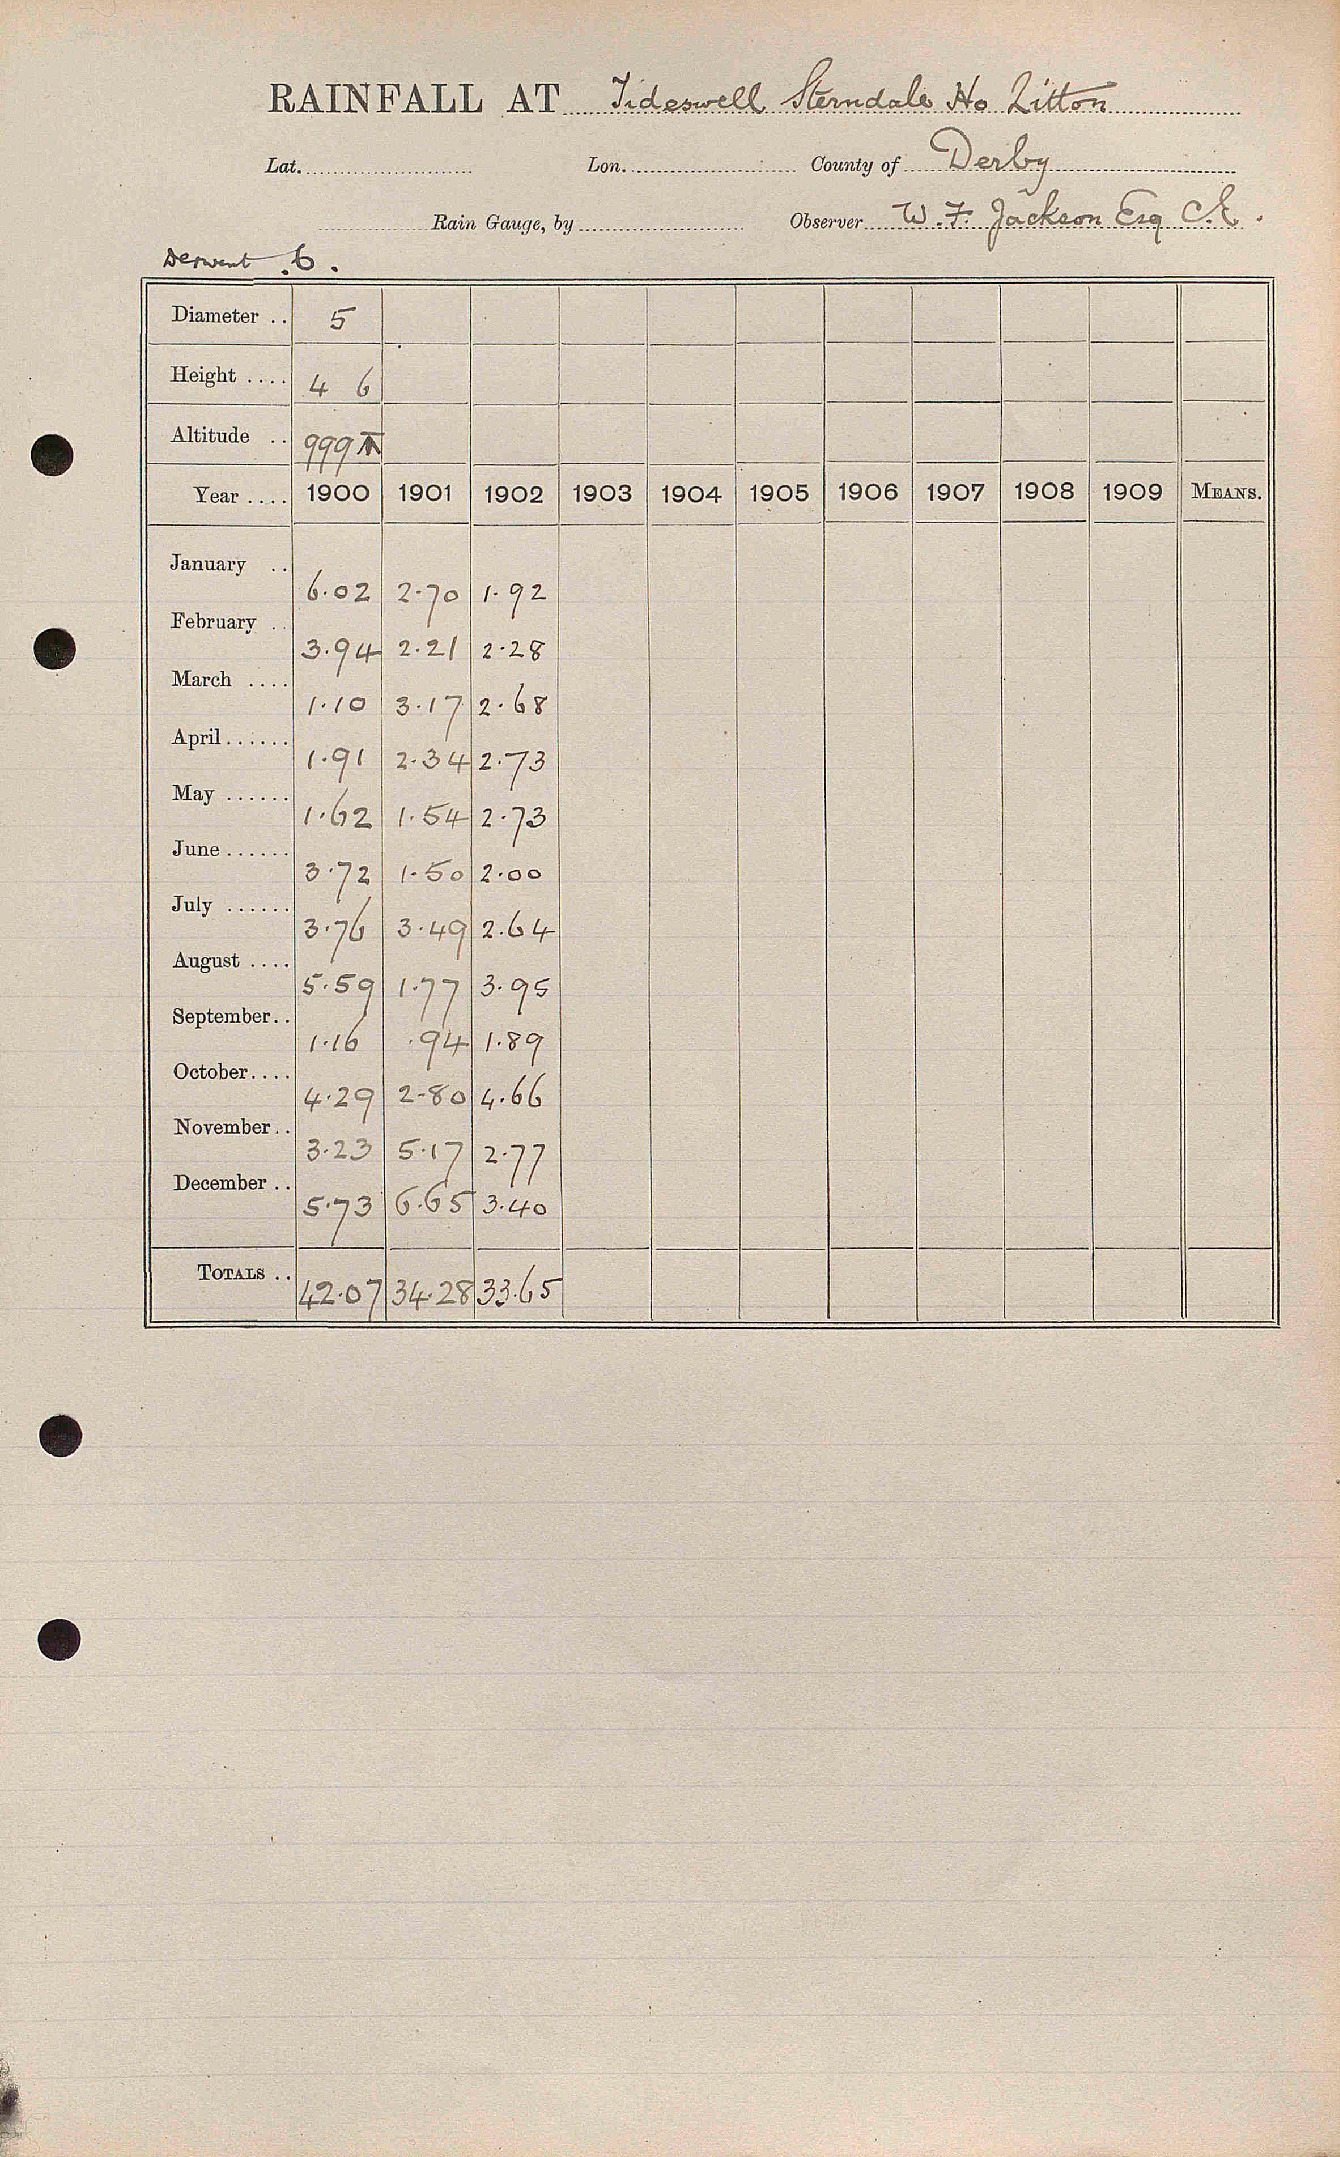 RAINFALL AT Tideswell Sterndale Ho Litton
Lat. Lon. County of Derby
Rain Gauge, by Observer W. F. Jackson Esq C.E.
Derwent 6.
Diameter .. 5
Height .... 4 6
Altitude .. 999
Year .... 1900 1901 1902 1903 1904 1905 1906 1907 1908 1909 MEANS.
January .. 6.02 2.70 1.92
February .. 3.94 2.21 2.28
March .... 1.10 3.17 2.68
April...... 1.91 2.34 2.73
May ...... 1.62 1.54 2.73
June ...... 3.72 1.50 2.00
July ...... 3.76 3.49 2.64
August .... 5.59 1.77 3.95
September.. 1.16 .94 1.89
October.... 4.29 2.80 4.66
November.. 3.23 5.17 2.77
December .. 5.73 6.65 3.40
TOTALS .. 42.07 34.28 33.65